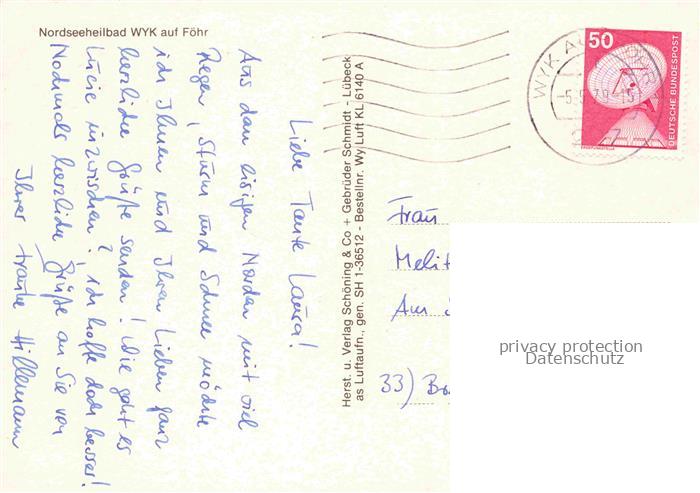 Nordseeheilbad WYK auf Föhr
Liebe Tante Laura!
Aus dem eisigen Norden mit viel
Regen, Sturm und Schnee möchte
ich Ihnen und Ihren Lieben ganz
herzliche Grüße senden! Wie geht es
Lucie inzwischen? Ich hoffe doch besser!
Nochmals herzliche Grüße an Sie von
Ihrer Frauke Hillemann
Herst. u. Verlag Schöning & Co + Gebrüder Schmidt - Lübeck
as Luftaufn., gen. SH 1-36512 - Bestellnr. Wy Luft KL 6140 A
WYK AUF FÖHR
-5.5.79-15
50
DEUTSCHE BUNDESPOST
Frau
Melit
Am
33)
privacy protection
Datenschutz